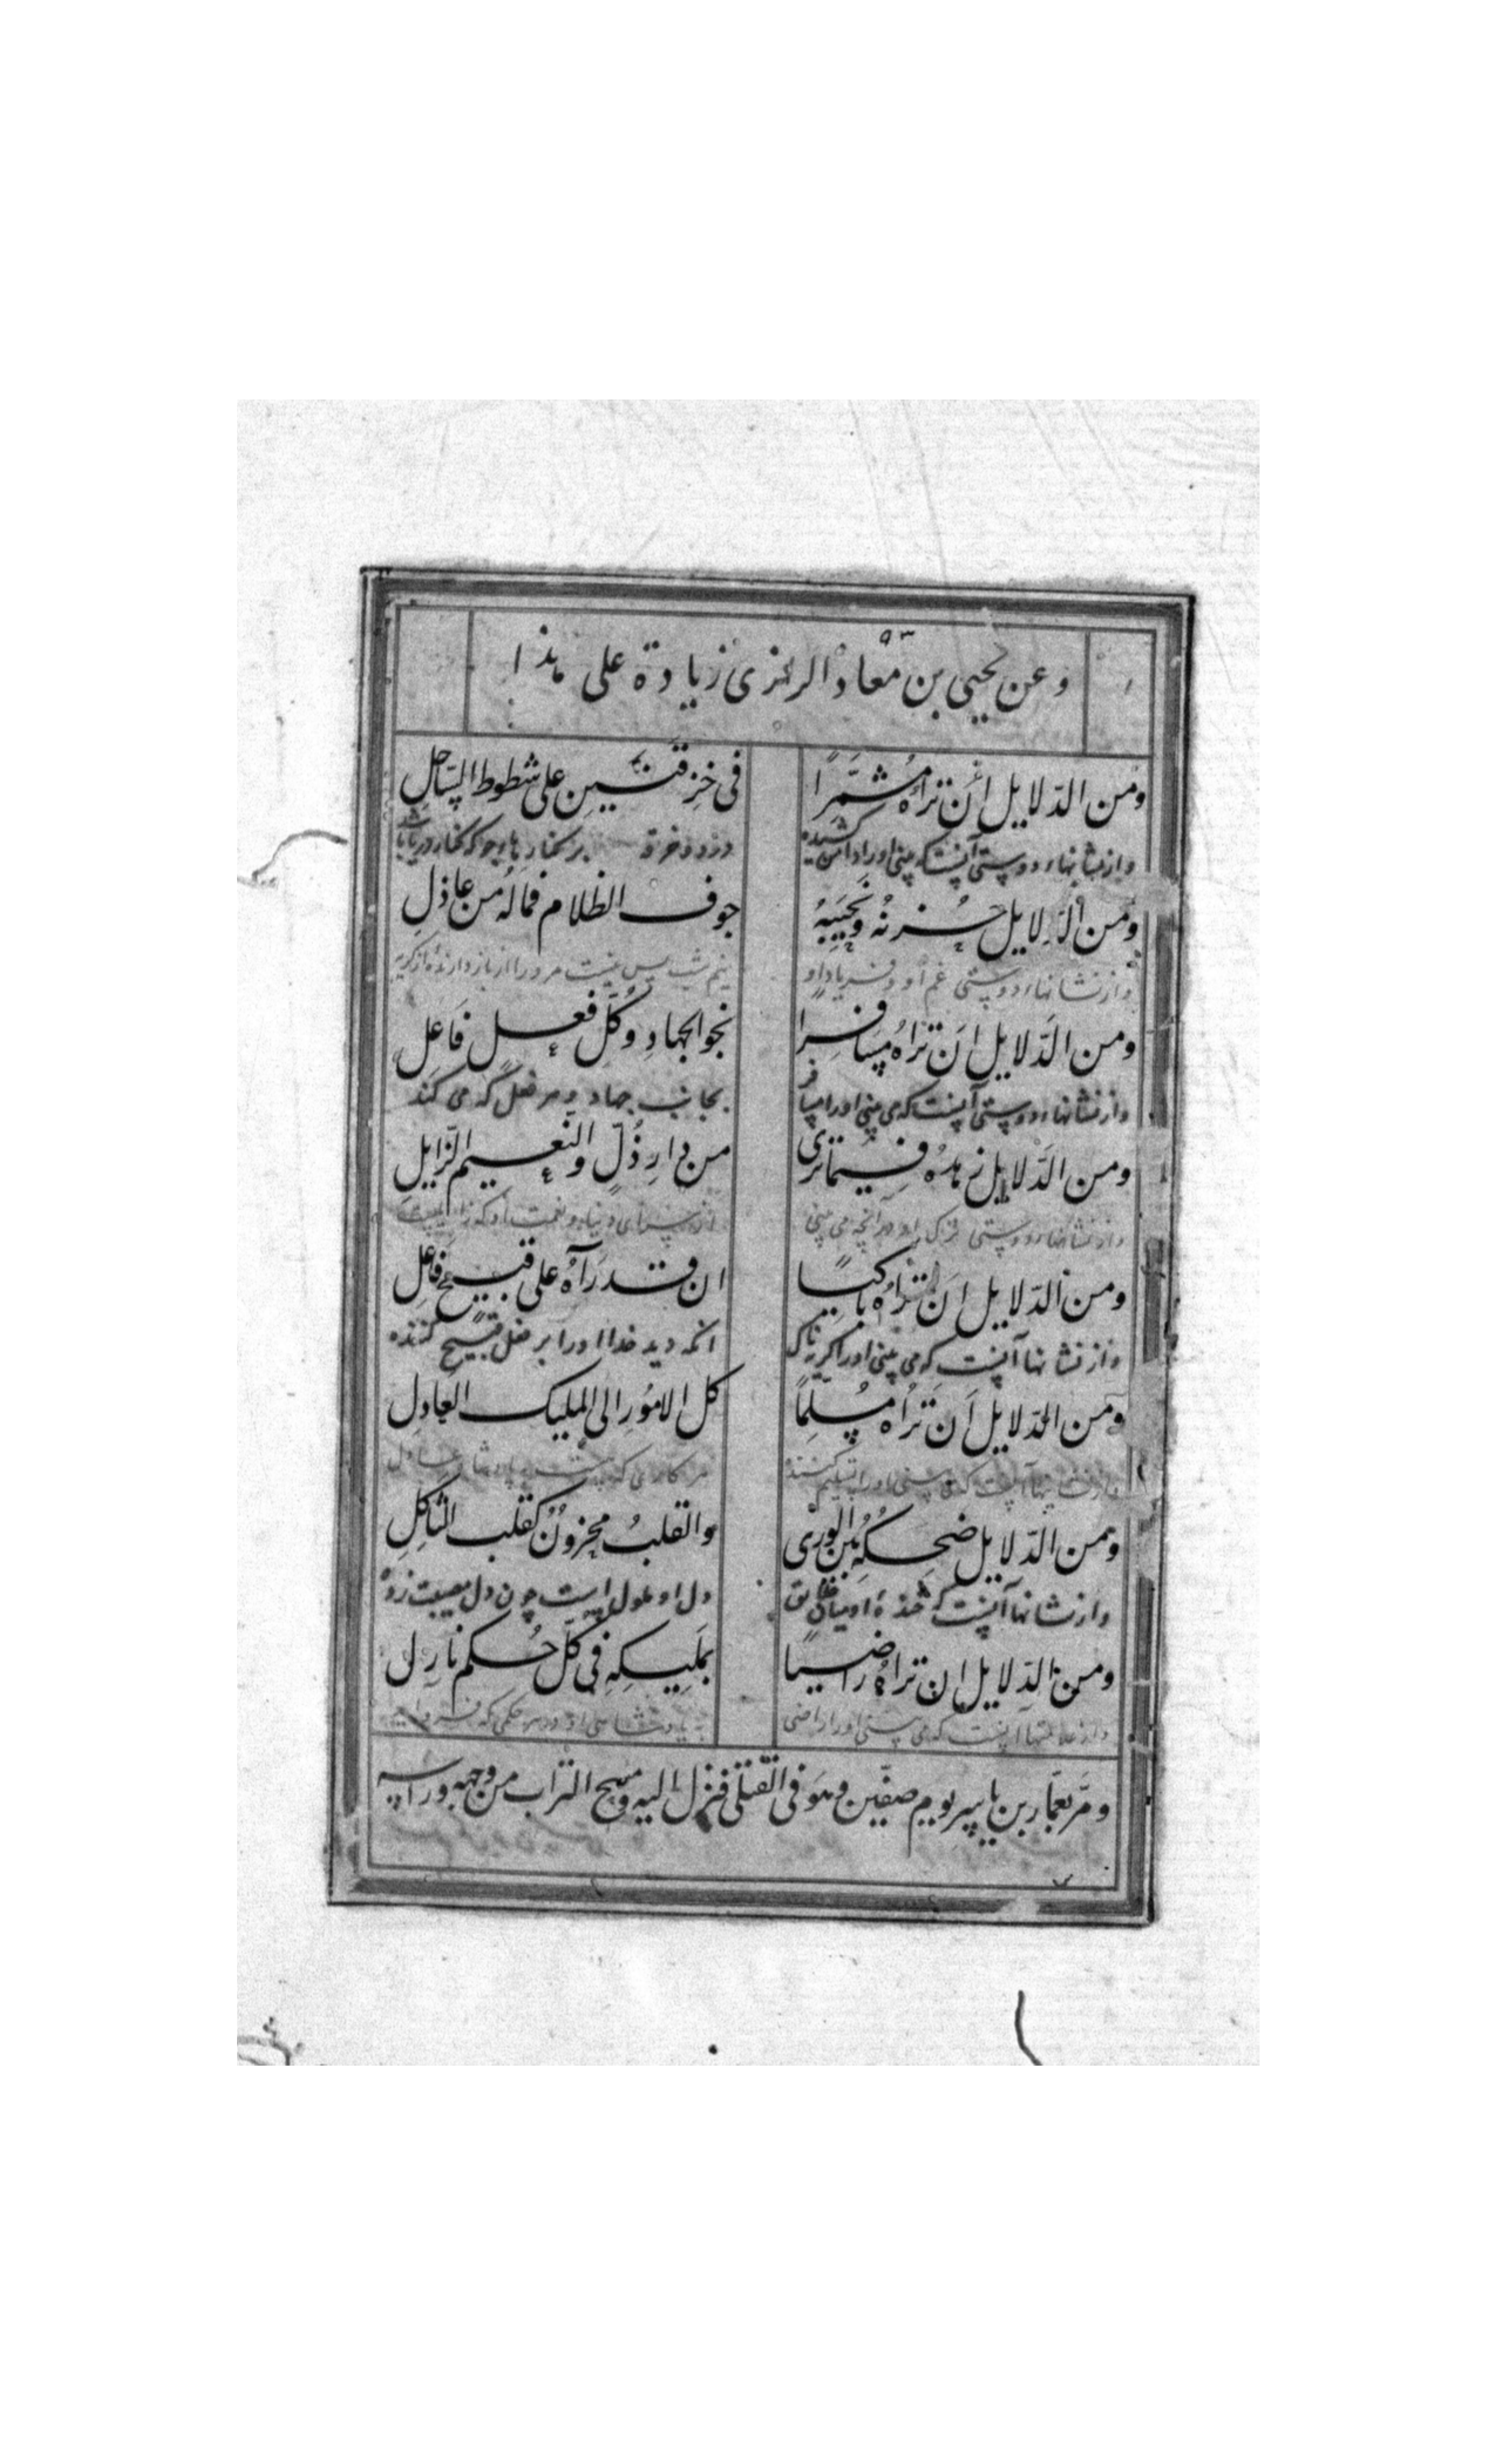 وعن يحيى بن معاذ الرازى زيادة على هذا
ومن الدّلايل أن تراهُ مُشمَّرًا فى خِرقتَينِ على شطوط السّاحلِ
وازنشانهاء دوستى آنست كه بينى اورا دامن كشيده در دو خرقه بر كنار هاء جو كه كنار دريا باشد
ومن الدّلايل حُزنهُ ونَحيبهُ جوف الظلام فمالهُ من عاذلِ
وازنشانهاء دوستى غم او و فرياد او نيم شب پس نيست مرورا از بازدارنده از گريه
ومن الدّلايل أن تراهُ مسافرا نحو الجهادِ وكُلّ فعلٍ فَاعلِ
وازنشانهاء دوستى آنست كه مى بينى اورا مسافر بجانب جهاد و هر فعل كه مى كند
ومن الدّلايل زهدهُ فيما ترى من دارِ ذُلٍّ والنعيم الزّايلِ
وازنشانهاء دوستى ترك او در آنچه مى بينى از سراى دنيا و نعمت او كه زايلست
ومن الدّلايل أن تراهُ باكيًا ان قد رَآهُ على قبيحٍ فاعلِ
وازنشانها آنست كه مى بينى اورا گريه ناك آنكه ديد خدا اورا بر فعل قبيح كننده
ومن الدّلايل أن تراهُ مُسلِمًا كل الامُورِ الى المليك العادِلِ
وازنشانها آنست كه مى بينى اورا تسليم كننده هر كارى كه هست به پادشاه عادل
ومن الدّلايل ضحِكهُ بين الورى والقلبُ محزونٌ كقلب الثاكلِ
وازنشانها آنست كه خنده او ميان خلايق دل او ملول است چون دل مصيبت زده
ومن الدّلايل ان تراهُ راضيًا بمَلِيكهِ فى كلّ حُكم نازل
واز علامتها آنست كه مى بينى اورا راضى به پادشاهى او در هر حكمى كه
ومَرّ بعمّار بن ياسر يوم صفّين وهو فى القتلى فنزل اليه ومسح التراب من وجهه وراسه